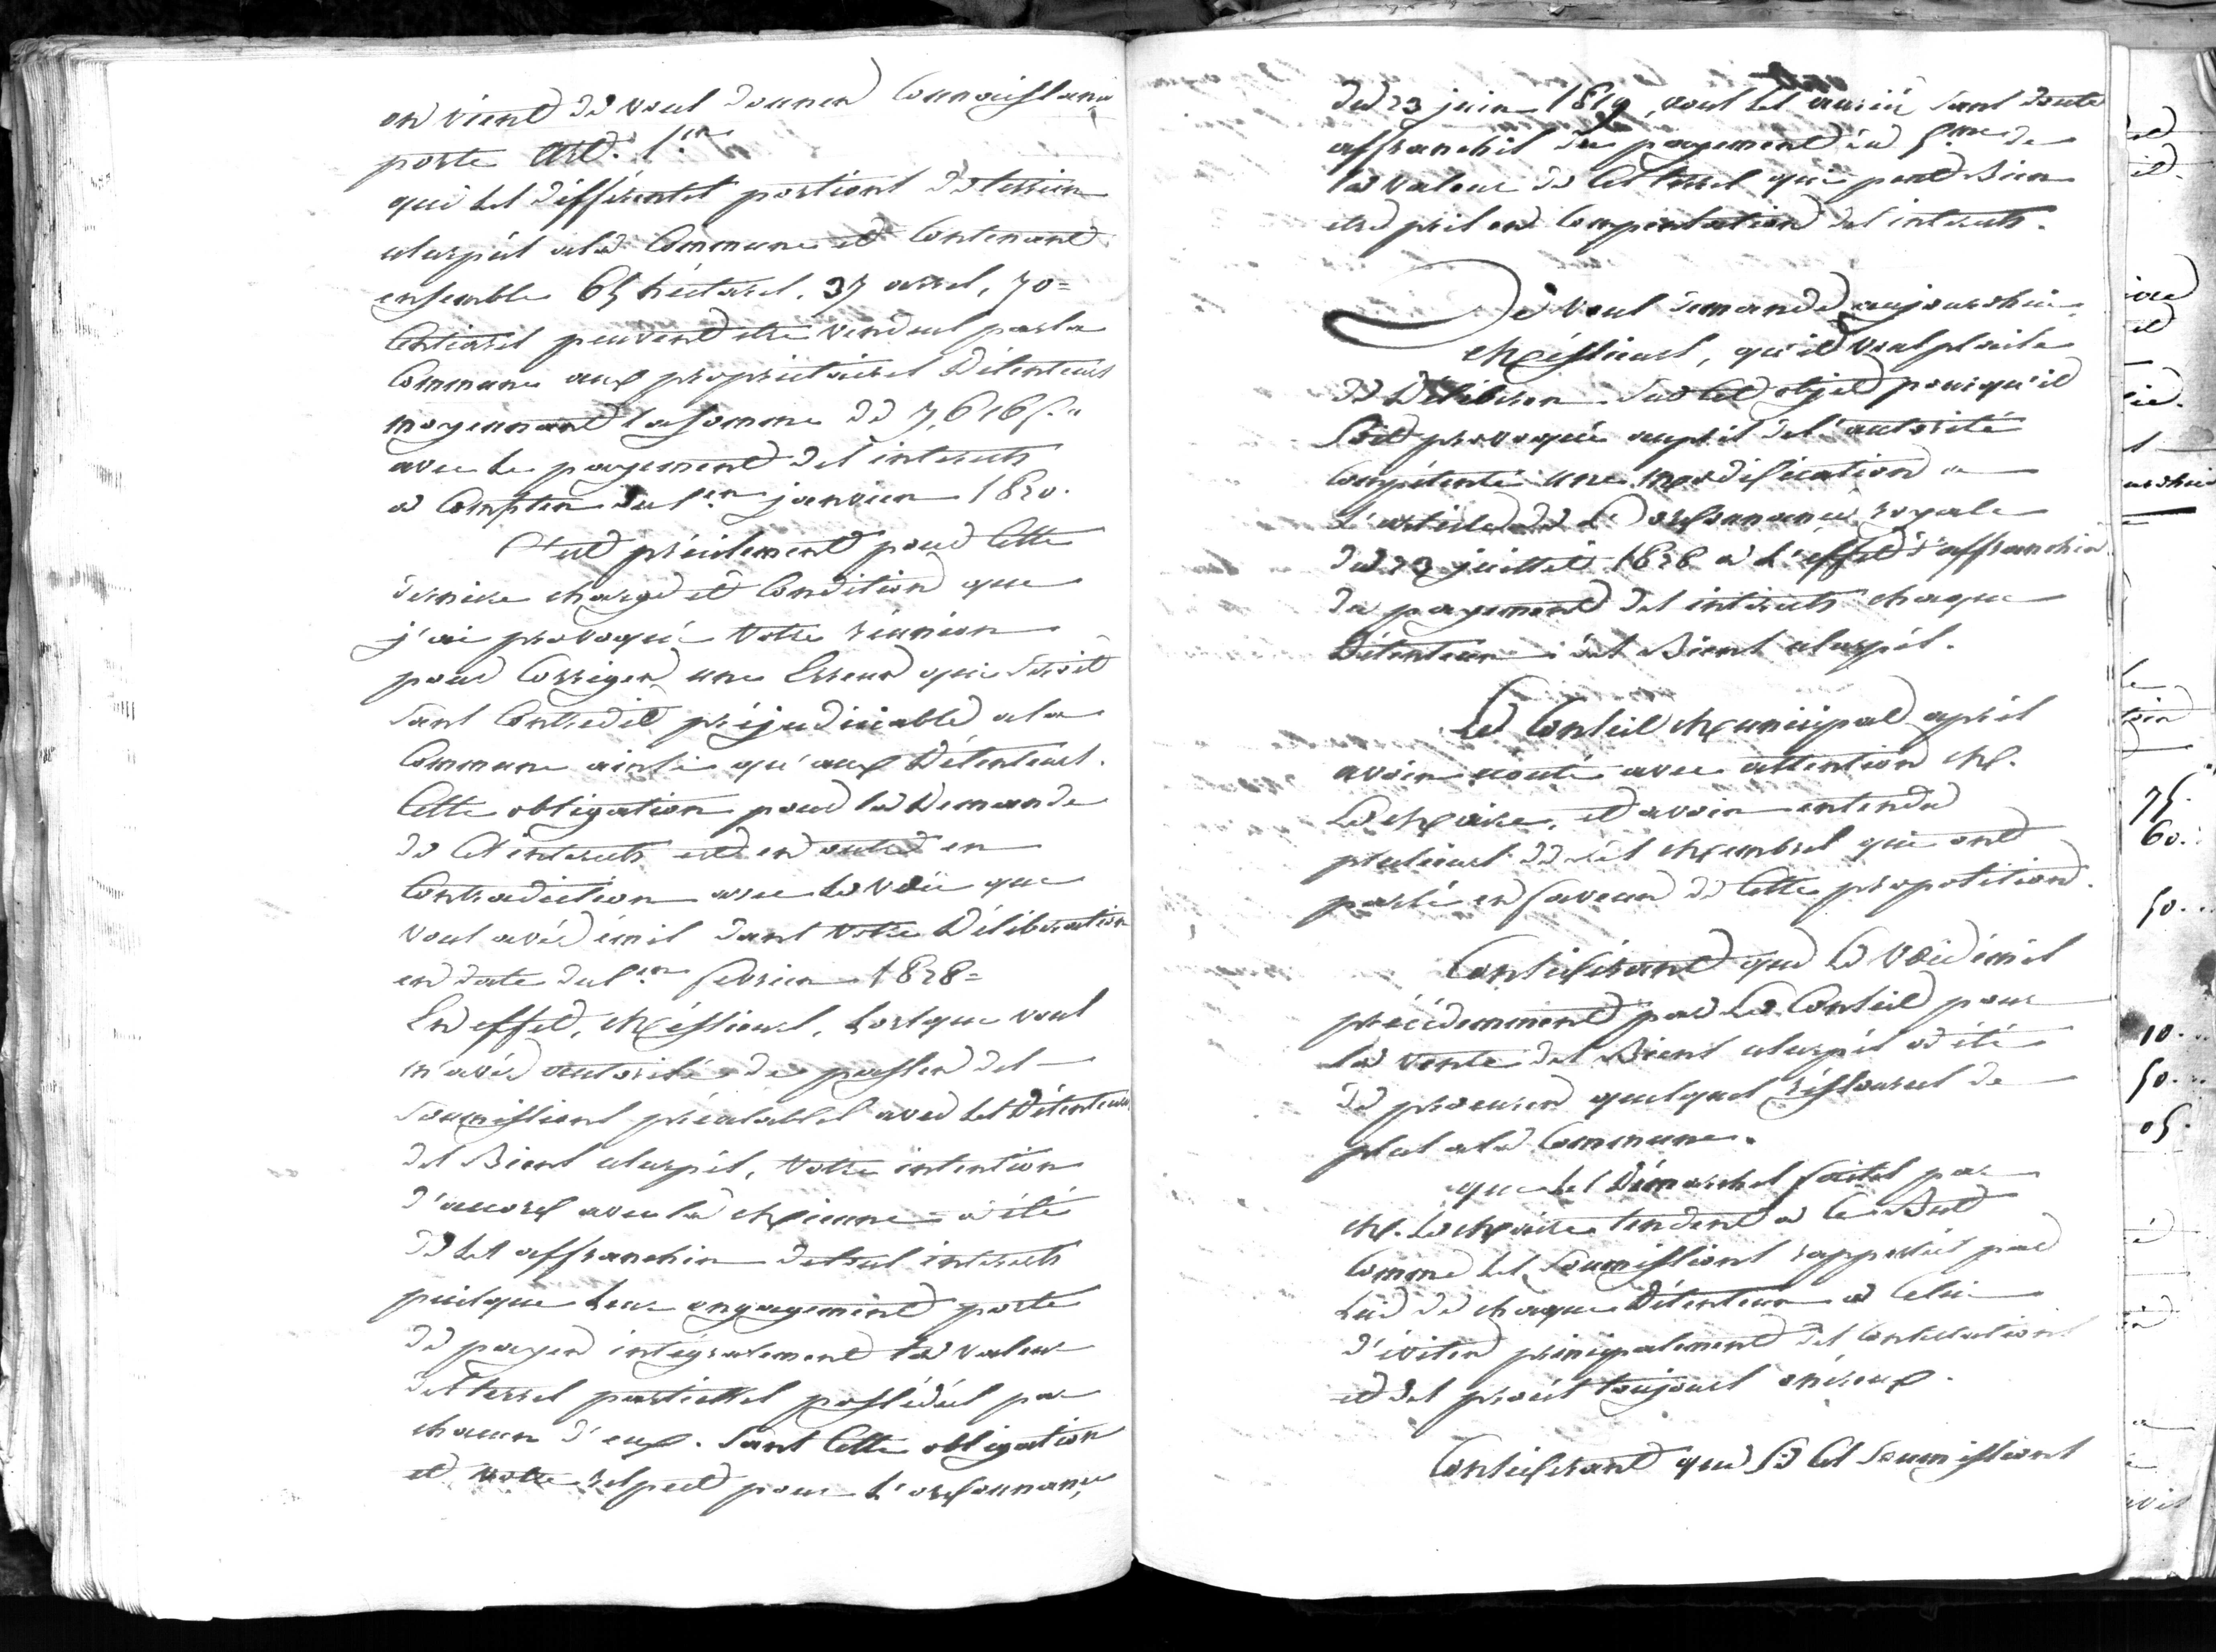 on vient de vous donner Connaissance
porte Art. 1.er
que les différentes portions de terrein
usurpés à la Commune et Contenant
ensemble 65 hectares, 37 ares, 70=
Centiares peuvent etre vendues par la
Commune aux propriétaires Détenteurs
moyennant la somme de 7,616 f. "
avec le payement des intérets
a Compter du 1.er janvier 1820.
C'est précisément pour Cette
derniere charge et Condition que
j'ai provoqué Votre réunion
pour Corriger une Erreur qui seroit
sans Contredit préjudiciable à la
Commune ainsi qu'aux Détenteurs.
Cette obligation pour la Demande
de Ces intérets est en outre en
Contradiction avec le vœu que
vous avés émis dans Votre Délibération
en date du 1.er fevrier 1828=
En effet, Messieurs, lorsque vous
m'avés autorisé de passer des
soumissions préalables avec les Détenteurs
des Biens usurpés, Votre intention
d'accord avec la Mienne = a été
de les affranchir de tous intérets
puisque leur engagement porte
de payer intégralement la valeur
des terres partielles possédées par
chacun d'eux. Sans Cette obligation
et Votre respect pour L'ordonnance
du 23 juin 1819, vous les auriés sans doute
affranchis du payement du 5.me de
la valeur de Ces terres qui peut Bien
etre pris en Compensation des intérets.
Je vous demande aujourdhui
Messieurs, qu'il vous plaise
de Délibérer sur Cet objet pour qu'il
soit provoqué auprès de l'autorité
Compétente une modification a
L'article de L'ordonnance royale
du 23 juillet 1828 a L'effet d'affranchir
du payement des intérets chaque
Détenteur des Biens usurpés.
Le Conseil Municipal après
avoir écouté avec attention M.
Le Maire, et avoir entendu
plusieurs de ses Membres qui ont
parlé en faveur de Cette proposition.
Considérant que Le vœu émis
précédemment par Le Conseil pour
la vente des Biens usurpés a été
de procurer quelques réssources de
plus à la Commune.
que les Démarches faites par
M. Le Maire tendent a Ce But
Comme les soumissions rapportées par
Lui de chaque Détenteur a Celui
d'éviter principalement des Contestations
et des procès toujours onéreux.
Considérant que si Ces soumissions